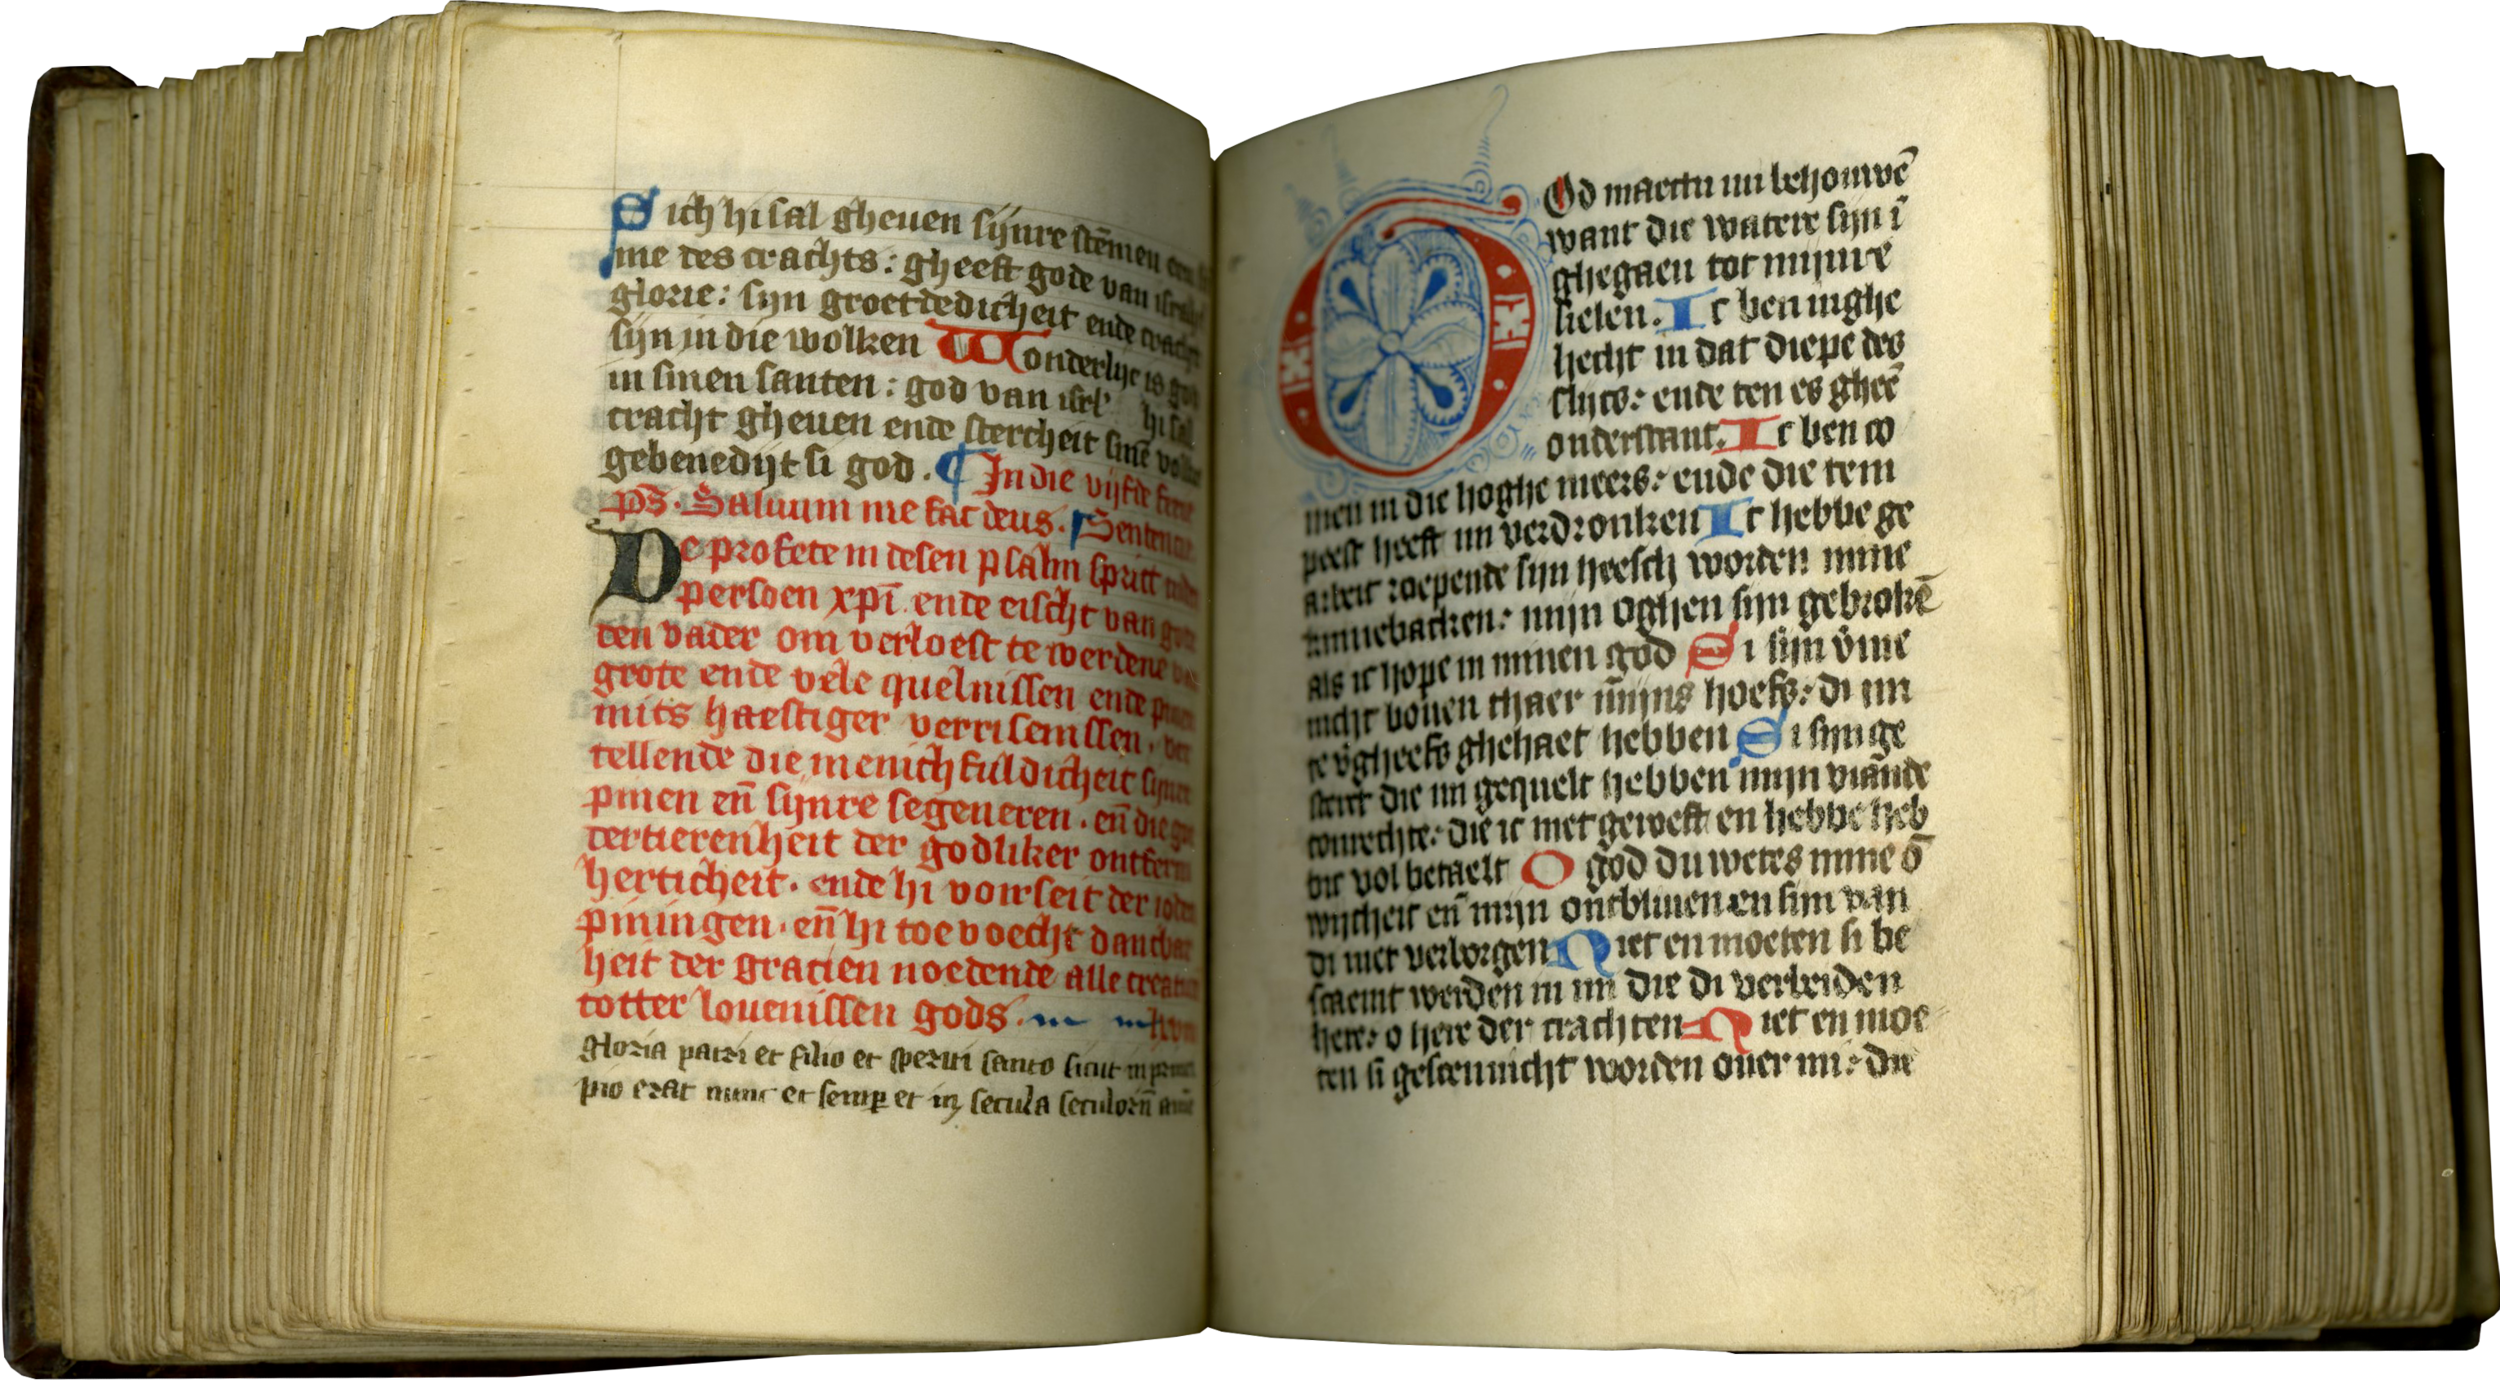 Sich hi sal gheuen sijnre stēmen een
me des crachts: gheeft gode van israhel
glorie: sijn groetdedicheit ende cracht
sijn in die wolken Wonderlijc is god
in sinen santen: god van isrl' hi sal
cracht gheuen ende stercheit sinē volke
gebenedijt si god. ¶ In die vijfde ferie
ps̄. Saluum me fac deus. Sentencie
De profete in desen psalm spriect
persoen xp̄i. ende eischt van gode
den vader om verloest te werdene van
grote ende vele quelnissen ende pinen
mits haestiger verrisenissen. ver
tellende die menichfuldicheit sijnre
pinen en̄ sijnre segeneren. en̄ die goe
dertierenheit der godliker ontferm
herticheit. ende hi voirseit der ioden
piningen. en̄ hi toe voecht dancbar
heit der gracien noedende alle creaturen
totter louenissen gods.
gloria patri et filio et speritui santo sicut in princi
pio erat nunc et semꝑ et in secula seculorū amē
God maectu mi behouwē
want die watere sijn ī
ghegaen tot mijnrē
sielen. Ic ben inghe
hecht in dat diepe des
slijcs: ende ten es gheē
onderstant. Ic ben co
men in die hoghe meers: ende die tem
peest heeft mi verdronken Ic hebbe ge
arbeit roepende sijn heesch worden mine
kinnebacken: mijn oghen sijn gebrokē
als ic hope in minen god Si sijn v̄me
nicht bouen thaer m̄ijns hoefs: di mi
te v̄gheefs ghehaet hebben Si sijn ge
sterct die mi gequelt hebben mijn viāde
tonrechte: die ic niet geroeft en hebbe heb
bic vol betaelt O god du wetes mine ō
wijtheit en̄ mijn ontbliuen en sijn van
di niet verborgen Niet en moeten si be
scaemt werden in mi die di verbeiden
here: o here der crachten Niet en moe
ten si gescennicht worden ouer mi: die